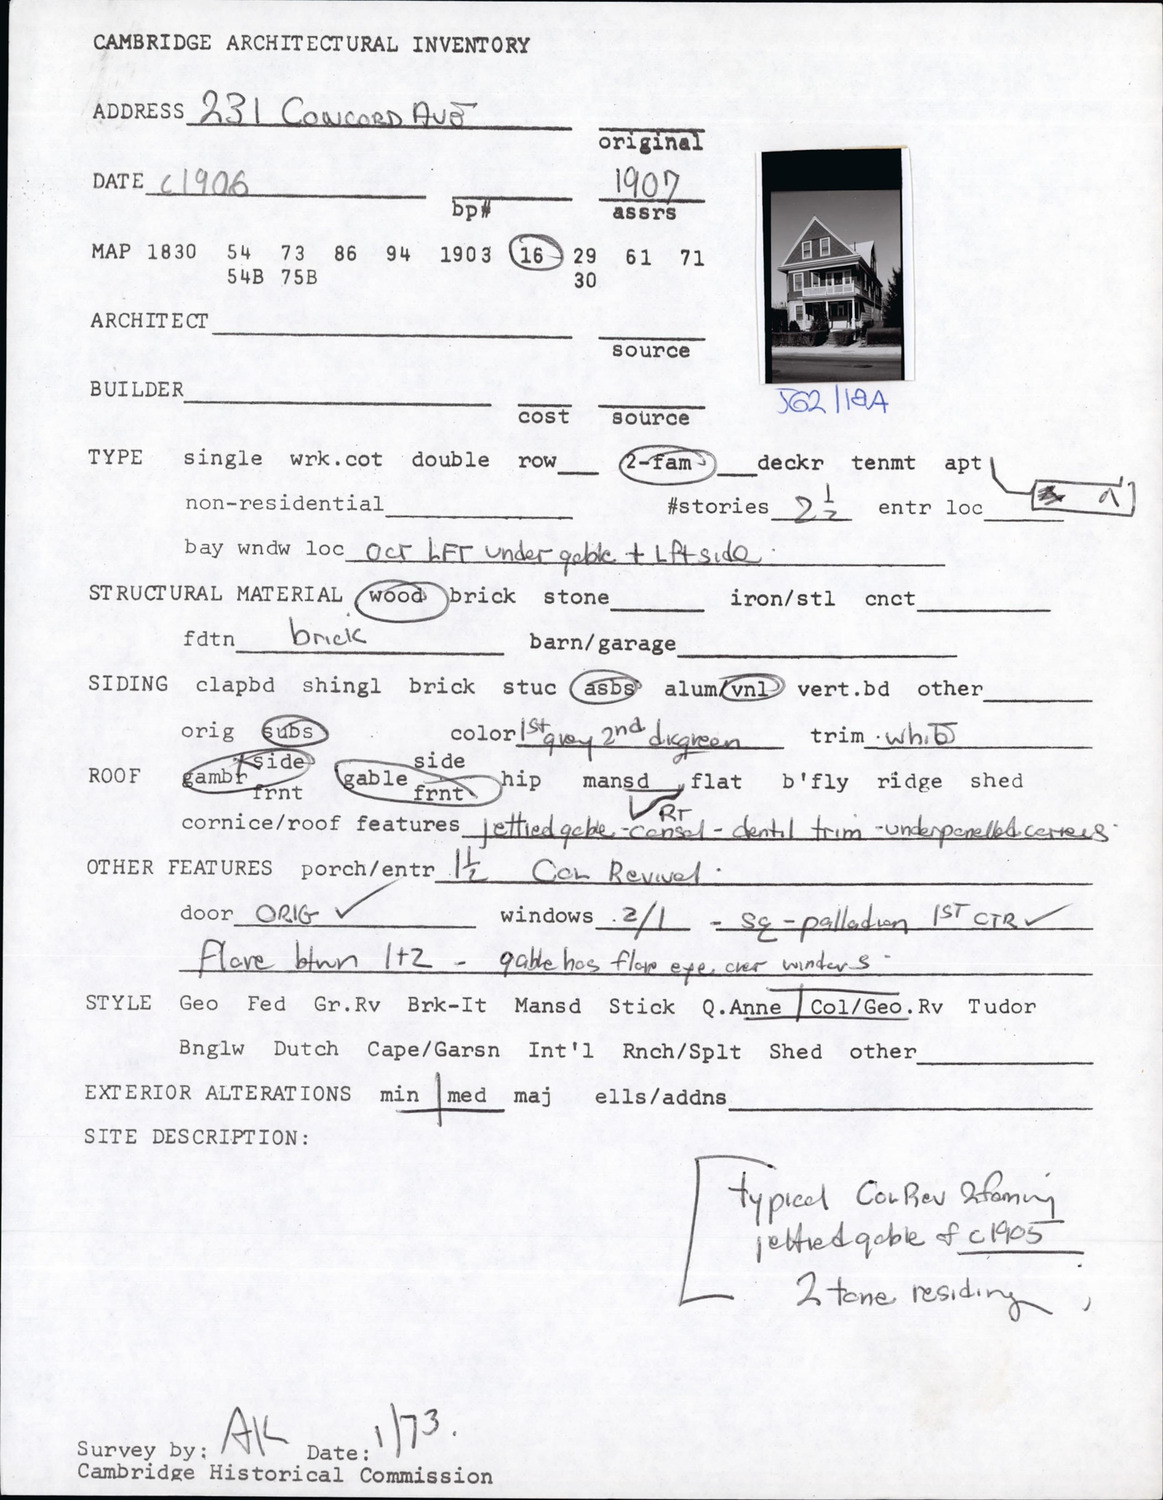 CAMBRIDGE ARCHITECTURAL INVENTORY
ADDRESS 231 CONCORD AVE
original
DATE c1906 bp# 1907
assrs
MAP 1830 54 73 86 94 1903 16 29 61 71
54B 75B 30
ARCHITECT
source
BUILDER
cost source
J62/12A
TYPE single wrk.cot double row 2-fam deckr tenmt apt
non-residential #stories 2 1/2 entr loc
bay wndw loc OCT LFT under gable + Lft side
STRUCTURAL MATERIAL wood brick stone iron/stl cnct
fdtn brick barn/garage
SIDING clapbd shingl brick stuc asbs alum/vnl vert.bd other
orig subs color 1st grey 2nd dkgreen trim white
side side
ROOF gambr gable hip mansd flat b'fly ridge shed
frnt frnt
RT
cornice/roof features jettied gable - consol - dentil trim - underpanelled corners
OTHER FEATURES porch/entr 1 1/2 Col Revival
door ORIG ✓ windows 2/1 - sq - palladian 1ST CTR ✓
flare btwn 1+2 - gable has flare eye. over windows
STYLE Geo Fed Gr.Rv Brk-It Mansd Stick Q.Anne Col/Geo.Rv Tudor
Bnglw Dutch Cape/Garsn Int'l Rnch/Splt Shed other
EXTERIOR ALTERATIONS min med maj ells/addns
SITE DESCRIPTION:
typical Col Rev 2 family
jettied gable of c1905
2 tone residing
Survey by: AK Date: 1/73.
Cambridge Historical Commission